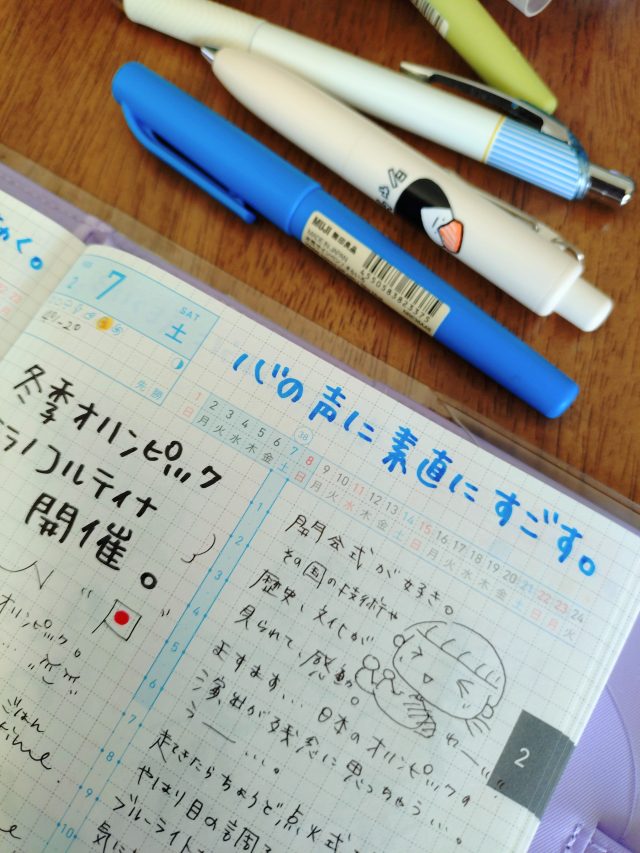 MUJI 無印良品
4550583823320
7
2
SAT
土
先勝
心の声に素直にすごす。
1 2 3 4 5 6 7 8 9 10 11 12 13 14 15 16 17 18 19 20 21 22 23 24
日 月 火 水 木 金 土 日 月 火 水 木 金 土 日 月 火 水 木 金 土 日 月 火
38
冬季オリンピック
ミラノコルティナ
開催。
オリンピック。
ごはん
time
1
2
3
4
5
6
7
8
9
10
開会式が好き。
その国の技術や
歴史、文化が
見られて、感動。
ますます... 日本のオリンピックの
演出が残念に思っちゃう...。
うー...。
わー
起きたらちょうど点火式
やはり目の調
ブルーライト
気に
2